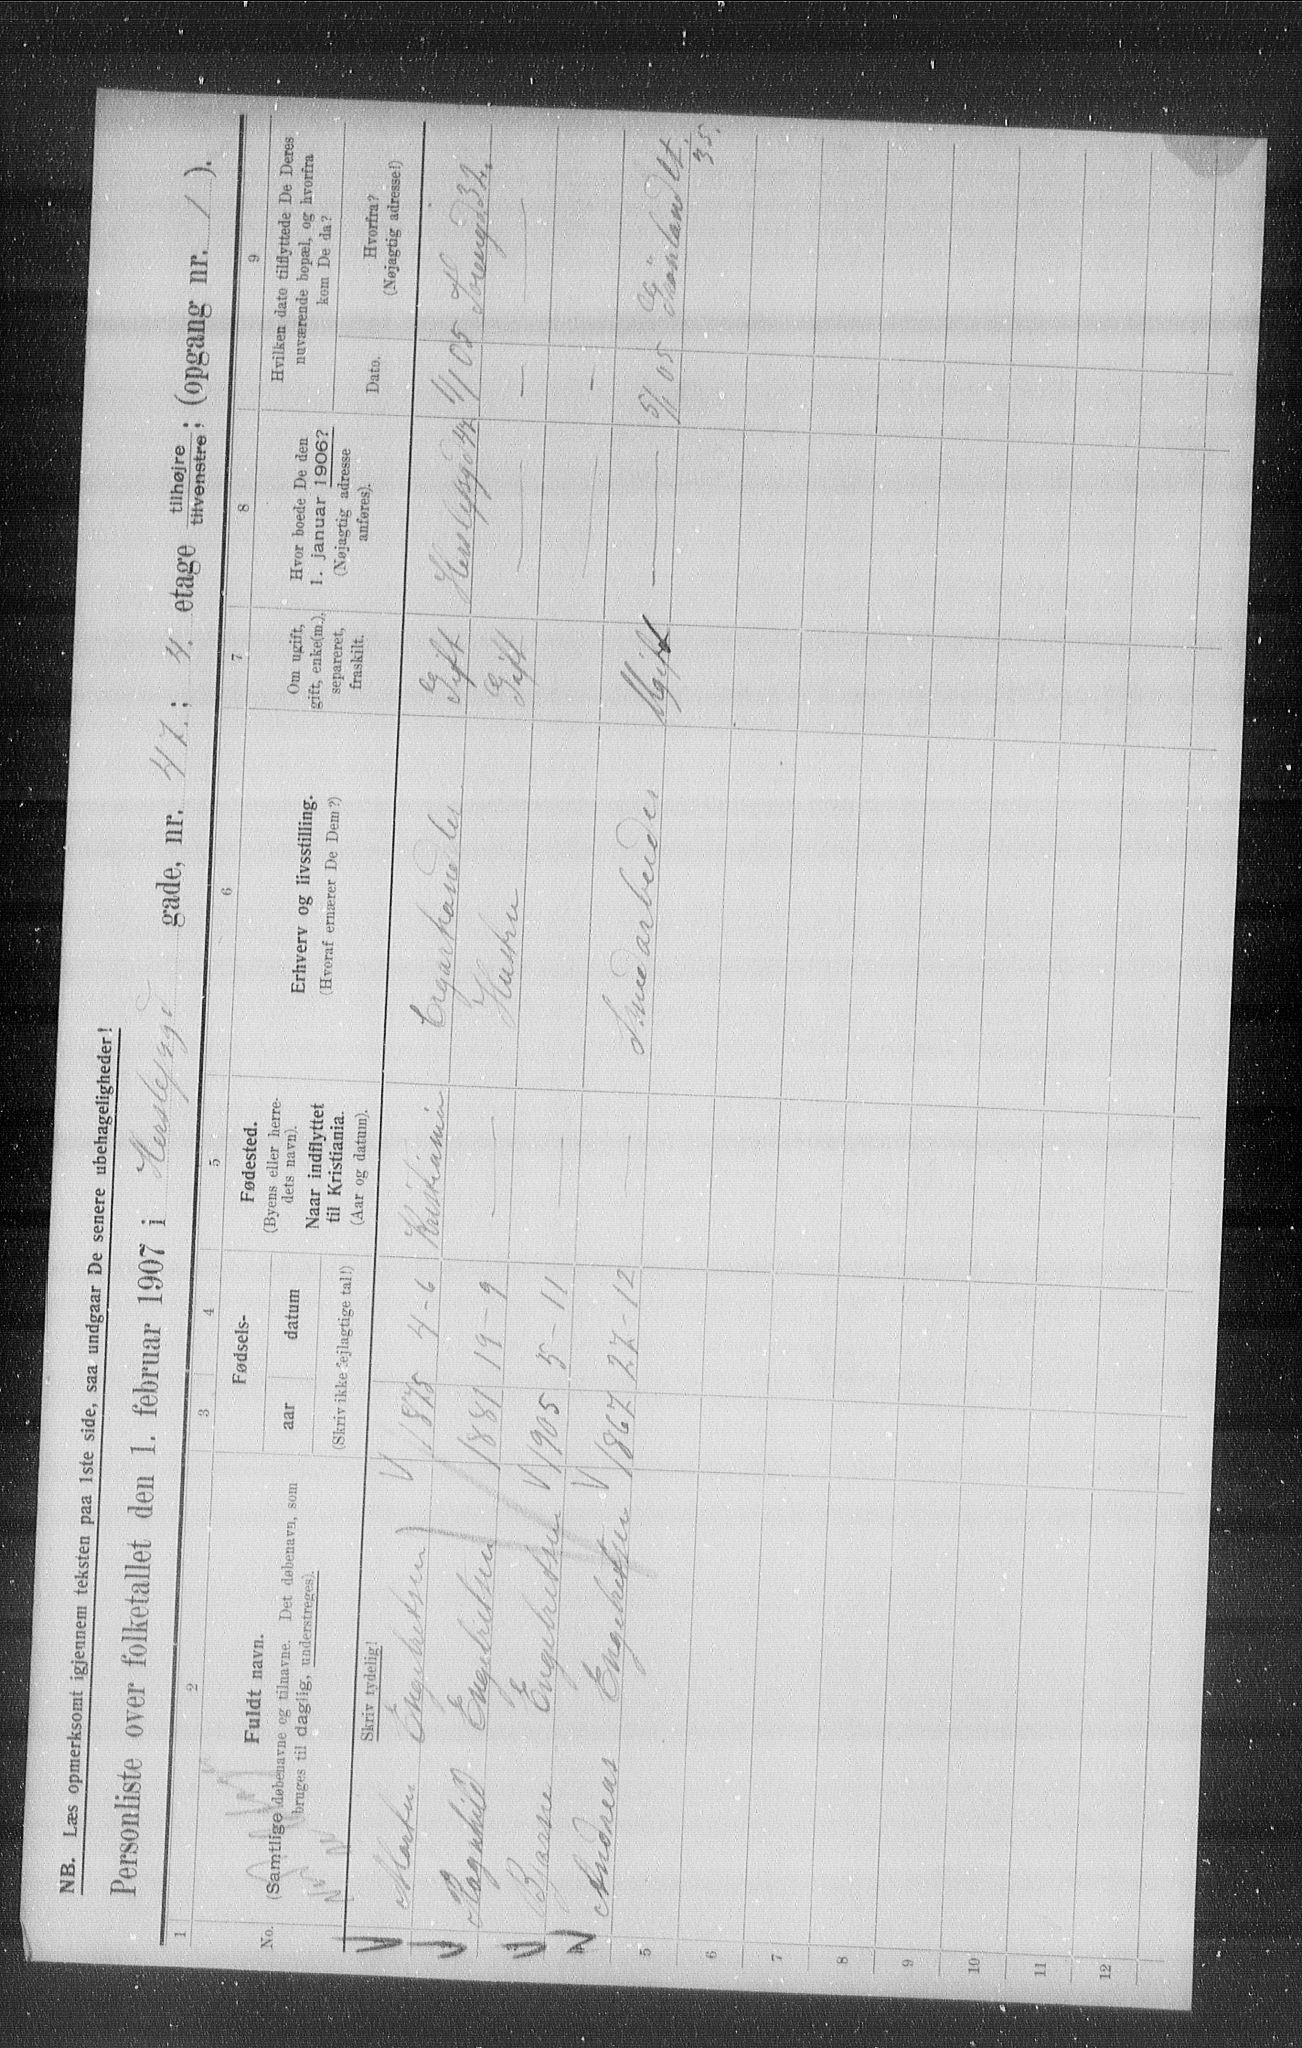 NB. Læs opmerksomt igjennem teksten paa 1ste side, saa undgaar De senere ubehageligheder!
Personliste over folketallet den 1. februar 1907 i Herslebsgd gade, nr. 47.; 4. etage tilhøjre tilvenstre; (opgang nr. 1).
1 2 3 4 5 6 7 8 9
No.
Fuldt navn.
(Samtlige døbenavne og tilnavne. Det døbenavn, som
bruges til daglig, understreges).
Skriv tydelig!
Fødsels-
aar datum
(Skriv ikke fejlagtige tal!)
Fødested.
(Byens eller herre-
dets navn).
Naar indflyttet
til Kristiania.
(Aar og datum).
Erhverv og livsstilling.
(Hvoraf ernærer De Dem?)
Om ugift,
gift, enke(m.),
separeret,
fraskilt.
Hvor boede De den
1. januar 1906?
(Nøjagtig adresse
anføres).
Hvilken dato tilflyttede De Deres
nuværende bopæl, og hvorfra
kom De da?
Dato.
Hvorfra?
(Nøjagtig adresse!)
Engebretsen V 1875 4-6 Kristiania Cigarhandler Gift Herslebsgd 47 1/1 05 32.
Ragnhild Engebretsen 1881 19-9 — Hustru Gift — — —
Bjarne Engebretsen V 1905 5-11 — — —
Andreas Engebretsen V 1867 27-12 — Smedarbeider Ugift — 5/1 05 Grønlandslt. 35.
5
6
7
8
9
10
11
12